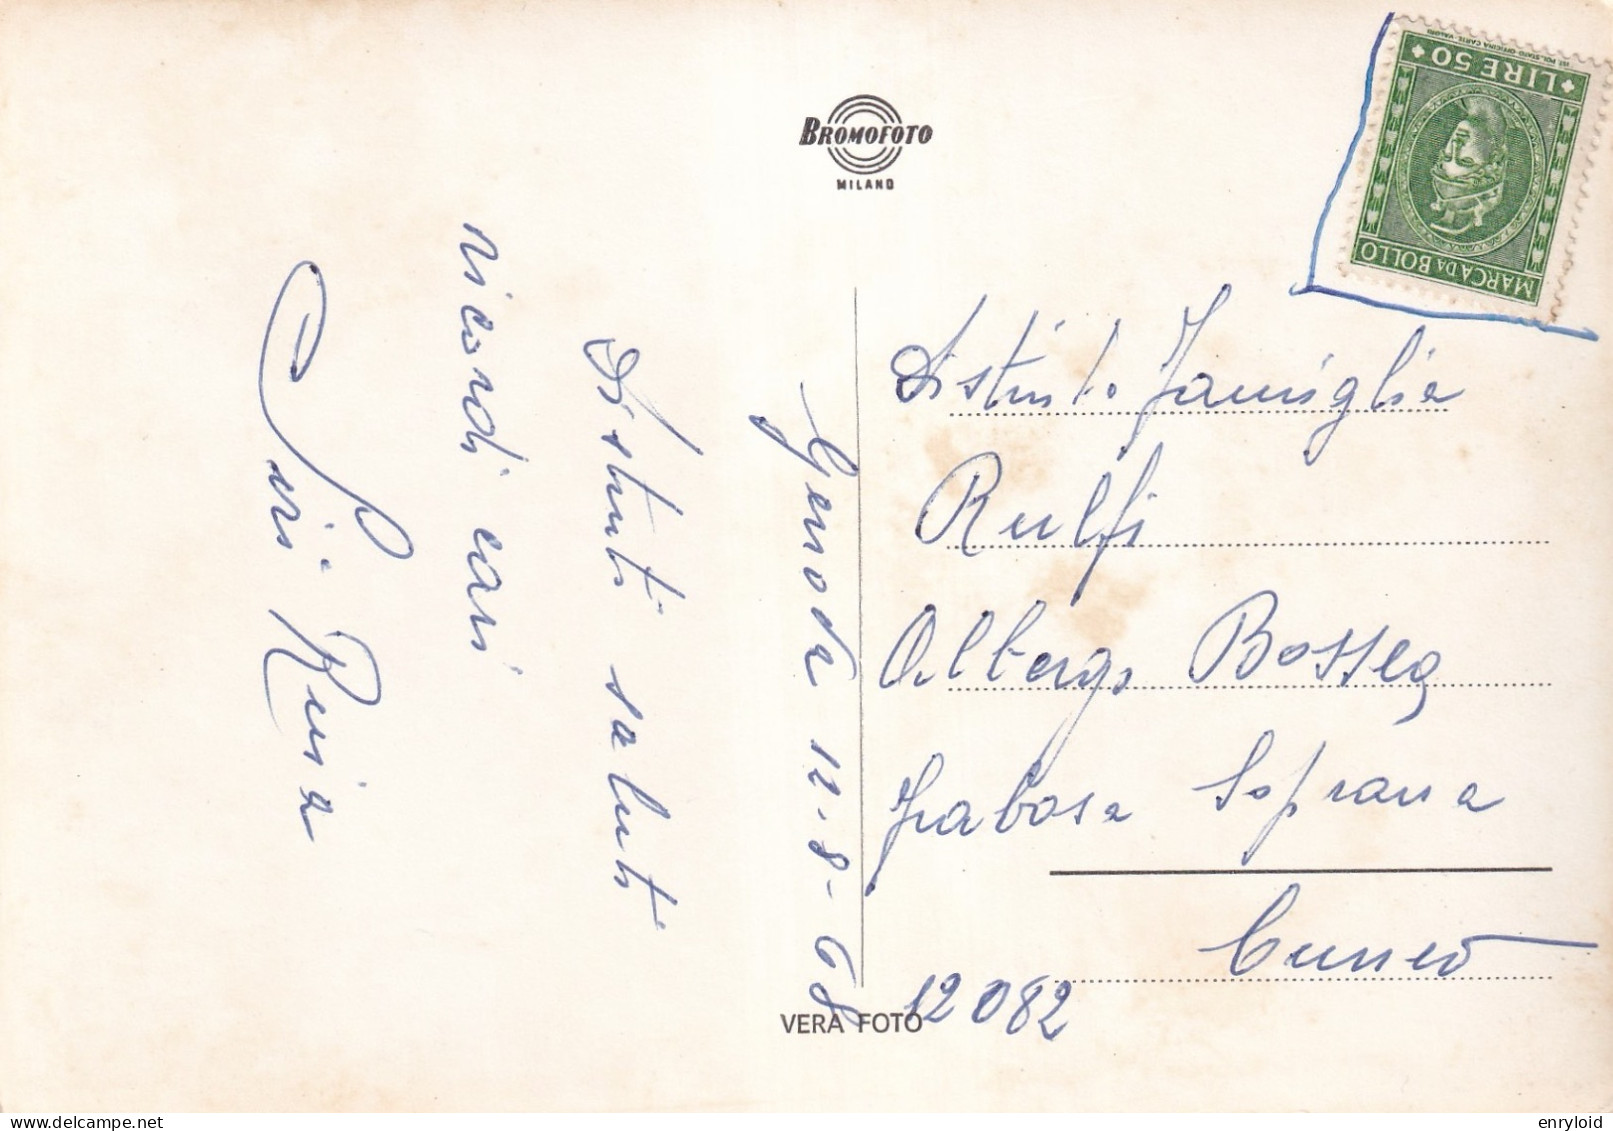 BROMOFOTO
MILANO
IST. POL. STATO OFFICINA CARTE VALORI
LIRE 50
MARCA DA BOLLO
Genova 12-8-68
Distinti saluti
ricordi cari
Siri Rusia
Distinta Famiglia
Rulfi
Albergo Bossea
Frabosa Soprana
Cuneo
12082
VERA FOTO
enryloid
delcampe.net